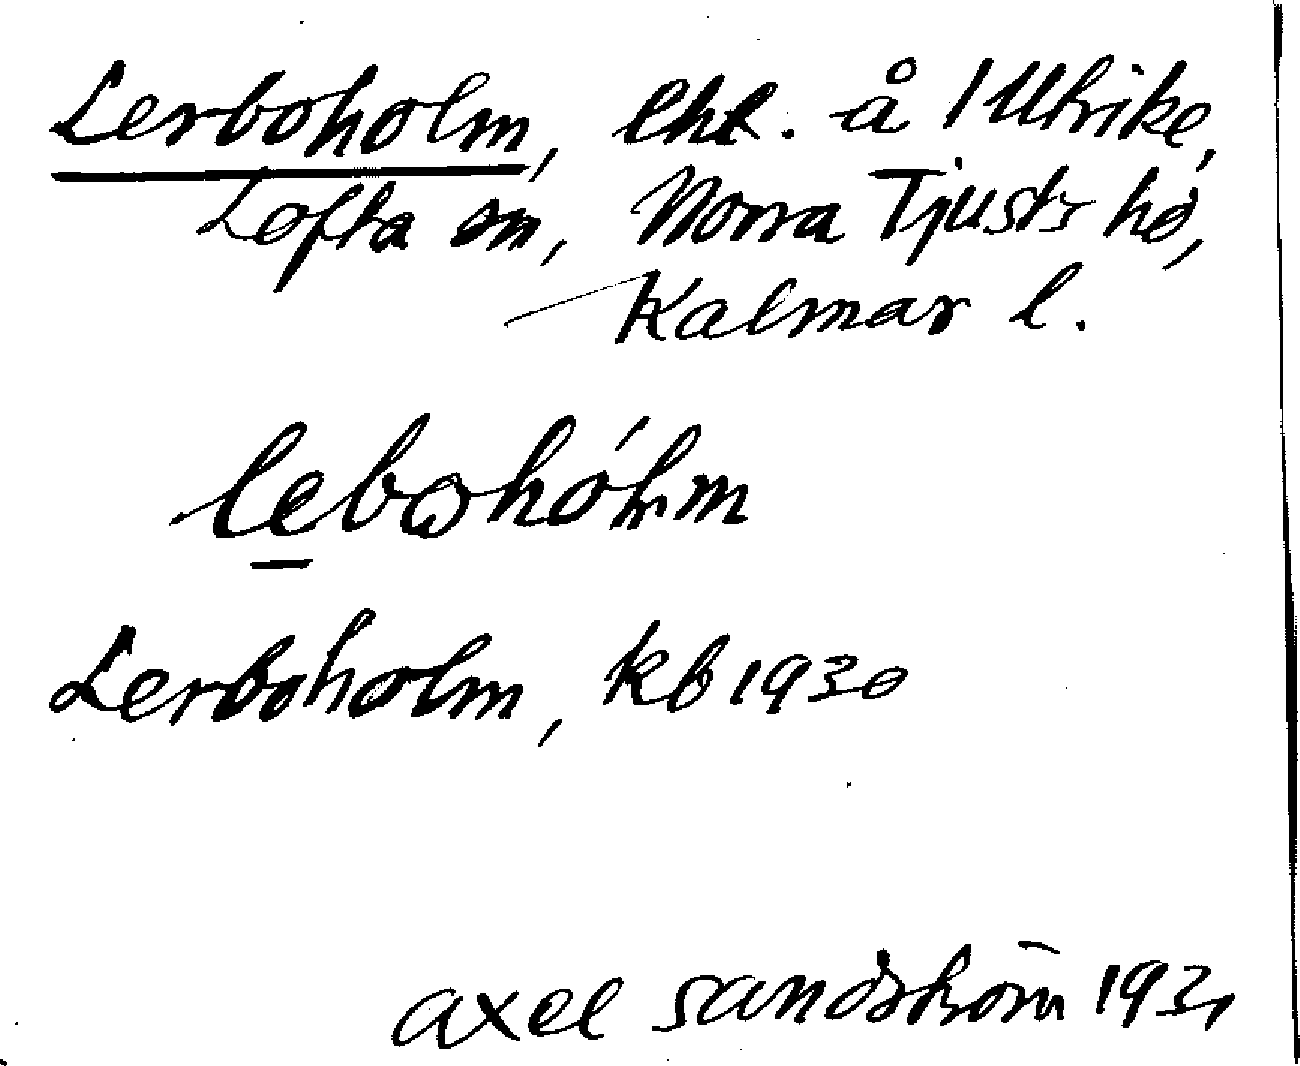 Lerboholm, lht. å 1 Ullrike,
Lofta sn, Norra Tjusts hd,
Kalmar l.
lebωhó̀lm
Lerboholm, kb 1930
Axel Sandström 1931